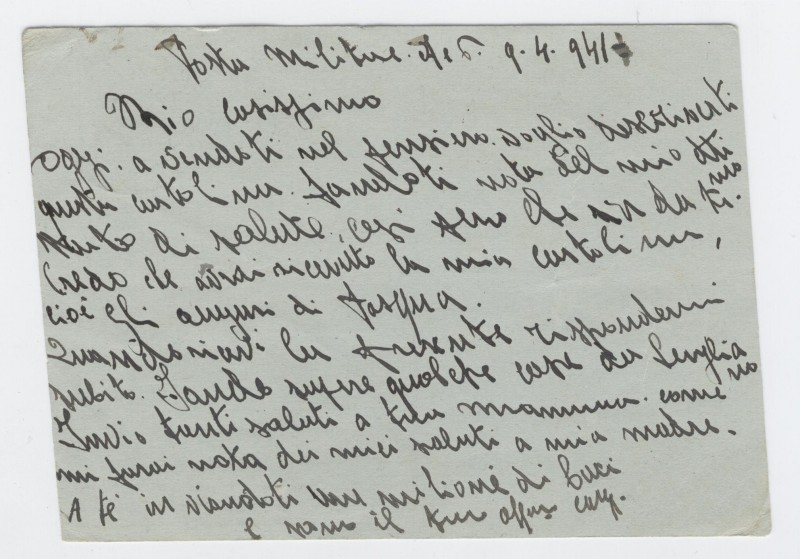 Posta Militare 9.4.941
Mio carissimo
Oggi. avendoti nel pensiero. voglio
questa cartolina. fandoti nota del mio otti
mo
stato di salute, così spero che da ti.
Credo che avrai ricevuto la mia cartolina,
cioè gli auguri di Pasqua.
Quando ricevi la presente rispondemi
subito. Fando sapere qualche cosa da
Invio tanti saluti a tua mamma. come
no
mi farai nota dei miei saluti a mia madre.
A te inviandoti un milione di baci
e sono il tuo